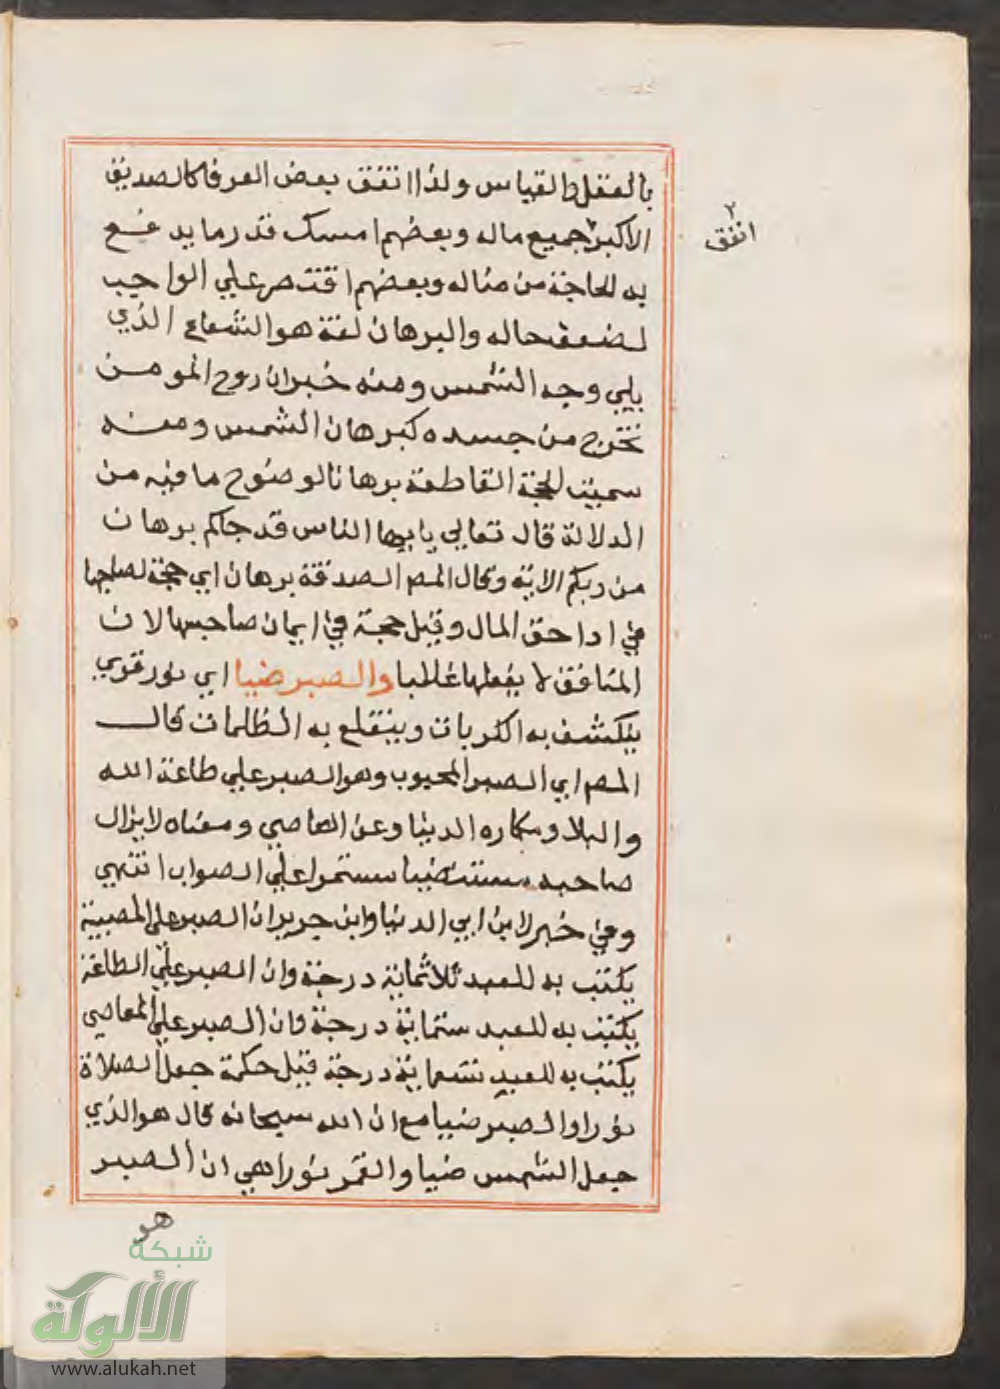 بالعقل والقياس ولذا اتفق بعض العرفا كالصديق
الاكبر جميع ماله وبعضهم امسك قدر ما يدفع
به الحاجة من مناله وبعضهم اقتصر علي الواجب
لضعف حاله والبرهان لغة هو الشعاع الذي
يلي وجه الشمس ومنه خبران روح المومن
تخرج من جسده كبرهان الشمس ومنه
سميت الحجة القاطعة برهانا لوضوح ما فيه من
الدلالة قال تعالي يايها الناس قد جاكم برهان
من ربكم الاية وقال المص الصدقة برهان اي حجة لصاحبها
في ادا حق المال وقيل حجة في ايمان صاحبها لان
المنافق لا يفعلها غالبا والصبر ضيا اي نور قوي
ينكشف به الكربات وينقلع به الظلمات قال
المص اي الصبر المحبوب وهو الصبر علي طاعة الله
والبلا ومكاره الدنيا وعن المعاصي ومعناه لا يزال
صاحبه مستضيا مستمرا علي الصواب انتهي
وفي خبر لابن ابي الدنيا وابن جرير ان الصبر علي المصيبة
يكتب به للعبد ثلاثماية درجة وان الصبر علي الطاعة
يكتب به للعبد ستماية درجة وان الصبر علي المعاصي
يكتب به للعبد تسعماية درجة قيل حكمة جعل الصلاة
نورا والصبر ضيا مع ان الله سبحانه قال هو الذي
جعل الشمس ضيا والقمر نورا هي ان الصبر
هو
٢
انفق
شبكة
الألوكة
www.alukah.net